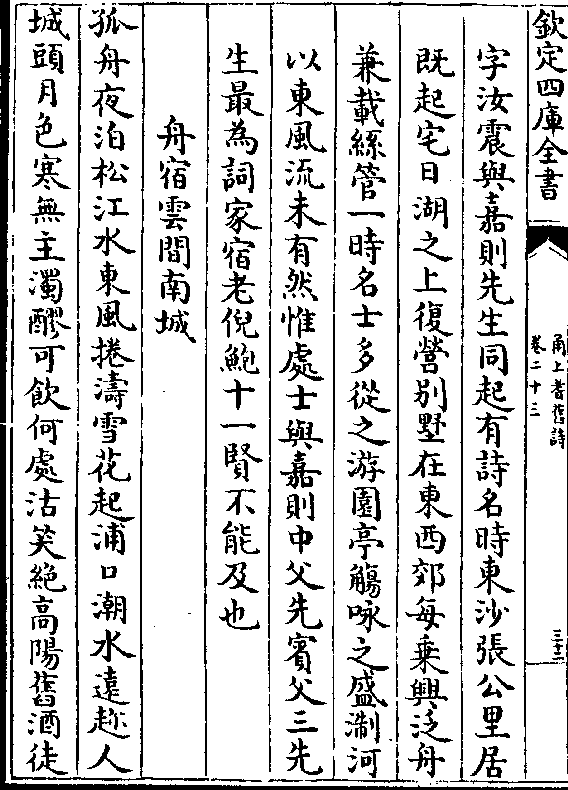 欽定四庫全書
甬上耆舊詩
卷二十三
三十二
字汝震與嘉則先生同起有詩名時東沙張公里居
既起宅日湖之上復營別墅在東西郊每乗興泛舟
兼載絲管一時名士多從之游園亭觴咏之盛淛河
以東風流未有然惟處士與嘉則中父先賓父三先
生最為詞家宿老倪鮑十一賢不能及也
舟宿雲間南城
孤舟夜泊松江水東風捲濤雪花起浦口潮水遠趂人
城頭月色寒無主濁醪可飲何處沽笑絶高陽舊酒徒